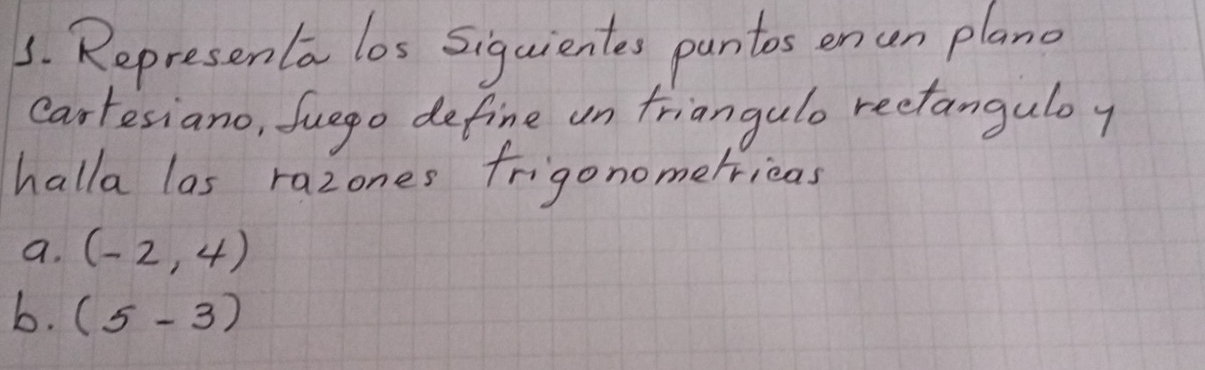 1. Representa los siguientes puntos en un plano
cartesiano, luego define un triangulo rectangulo y
halla las razones trigonometricas
a. (-2, 4)
b. (5 - 3)